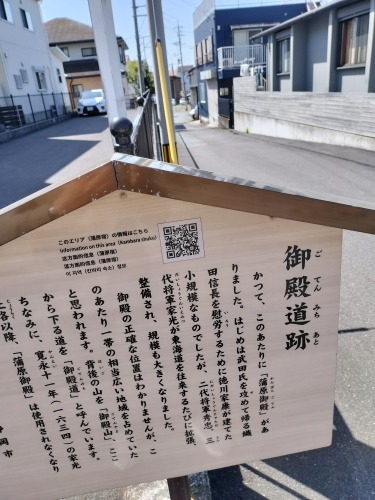 御殿道跡
ごてんみちあと
かつて、このあたりに「蒲原御殿」があ
りました。はじめは武田氏を攻めて帰る織
田信長を慰労するために徳川家康が建てた
小規模なものでしたが、二代将軍秀忠、三
代将軍家光が東海道を往来するたびに拡張、
整備され、規模も大きくなりました。
御殿の正確な位置はわかりませんが、こ
のあたり一帯の相当広い地域を占めていた
と思われます。背後の山を「御殿山」、ここ
から下る道を「御殿道」と呼んでいます。
ちなみに、寛永十一年(一六三四)の家光
上洛以降、「蒲原御殿」は使用されなくなり
岡市
このエリア（蒲原宿）の情報はこちら
Information on this area (Kambara-shuku)